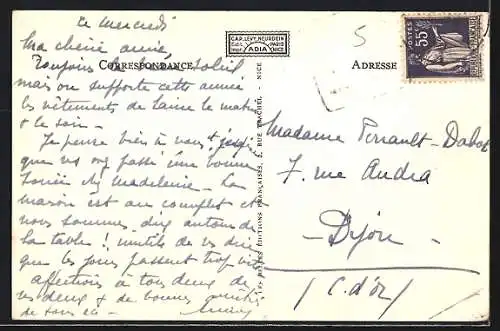 Le Mercredi
Ma chérie amie,
Toujours le beau soleil
mais on supporte cette année
les vêtements de laine le matin
& le soir.
Je pense bien à vous & j'espère
que vs avez passé une bonne
soirée chez Madeleine. La
maison est au complet et
nous sommes dix autour de
la table! inutile de vs dire
que les jours passent trop vite
affection à tous deux de
ns deux & de bonnes amitiés
de tous
CORRESPONDANCE
CAP. LEVY, NEURDEIN
PARIS
ADIA
NICE
LES BELLES ÉDITIONS FRANÇAISES, RUE TRACHEL - NICE
ADRESSE
5
POSTES
55c
Madame Perrault-Dabot
7. rue Audra
- Dijon -
(C. d'Or)